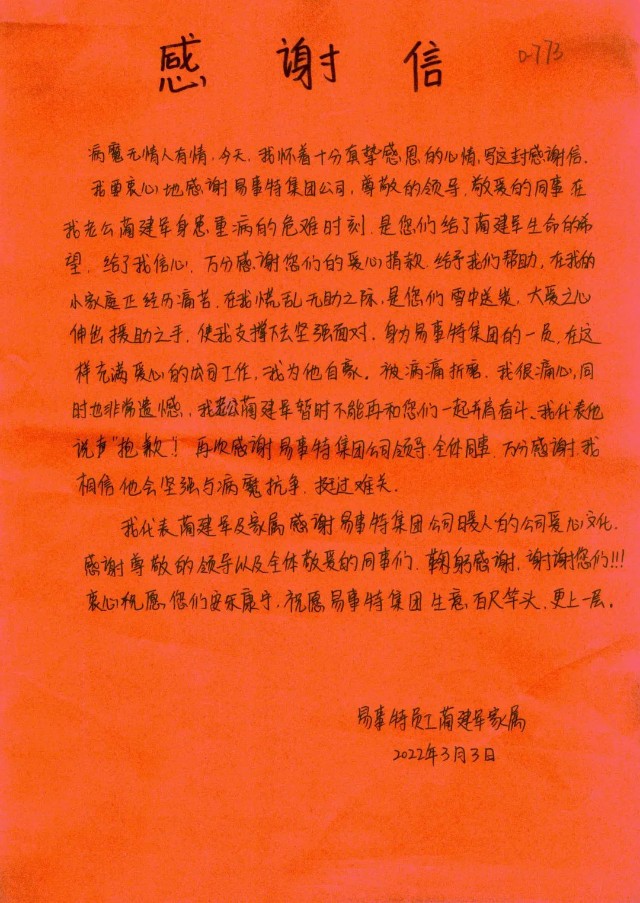 感谢信
0-773
病魔无情人有情,今天,我怀着十分真挚感恩的心情,写这封感谢信。
我要衷心地感谢易事特集团公司,尊敬的领导,敬爱的同事在
我老公蔺建军身患重病的危难时刻,是您们给了蔺建军生命的希
望,给了我信心,万分感谢您们的爱心捐款,给予我们帮助,在我的
小家庭正经历痛苦,在我慌乱无助之际,是您们雪中送炭,大爱之心
伸出援助之手,使我支撑下去坚强面对,身为易事特集团的一员,在这
样充满爱心的公司工作,我为他自豪。被病痛折磨,我很痛心,同
时也非常遗憾,我老公蔺建军暂时不能再和您们一起并肩奋斗、我代表他
说声“抱歉”!再次感谢易事特集团公司领导、全体同事,万分感谢,我
相信他会坚强与病魔抗争,挺过难关。
我代表蔺建军及家属感谢易事特集团公司暖人的公司爱心文化,
感谢尊敬的领导以及全体敬爱的同事们,鞠躬感谢,谢谢您们!!!
衷心祝愿您们安乐康宁,祝愿易事特集团生意百尺竿头,更上一层。
易事特员工蔺建军家属
2022年3月3日